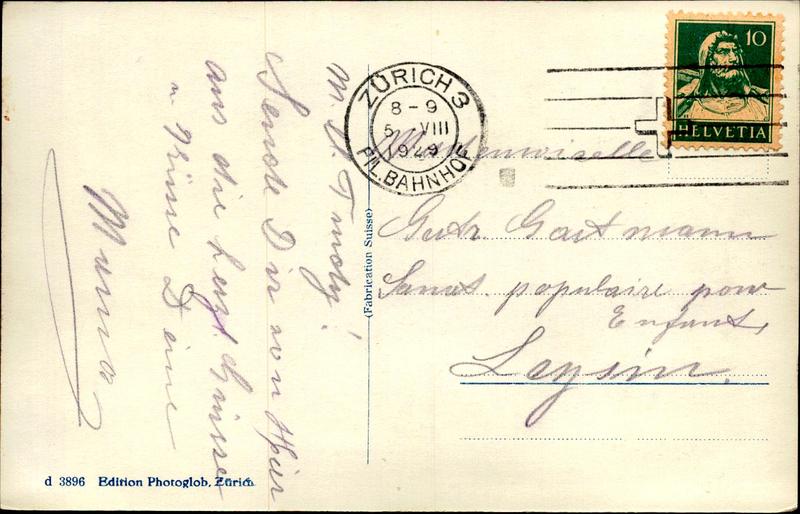 M. l. Trudy!
Sende Dir von Hier
aus die herzl. Grüsse
u. Grüsse Deine
Mama
d 3896 Edition Photoglob, Zürich
(Fabrication Suisse)
ZÜRICH 3
8-9
5 VIII
1929
FIL. BAHNHOF
10
HELVETIA
Mademoiselle
Gertr. Gartmann
Sanat. populaire pour
Enfants,
Leysin.